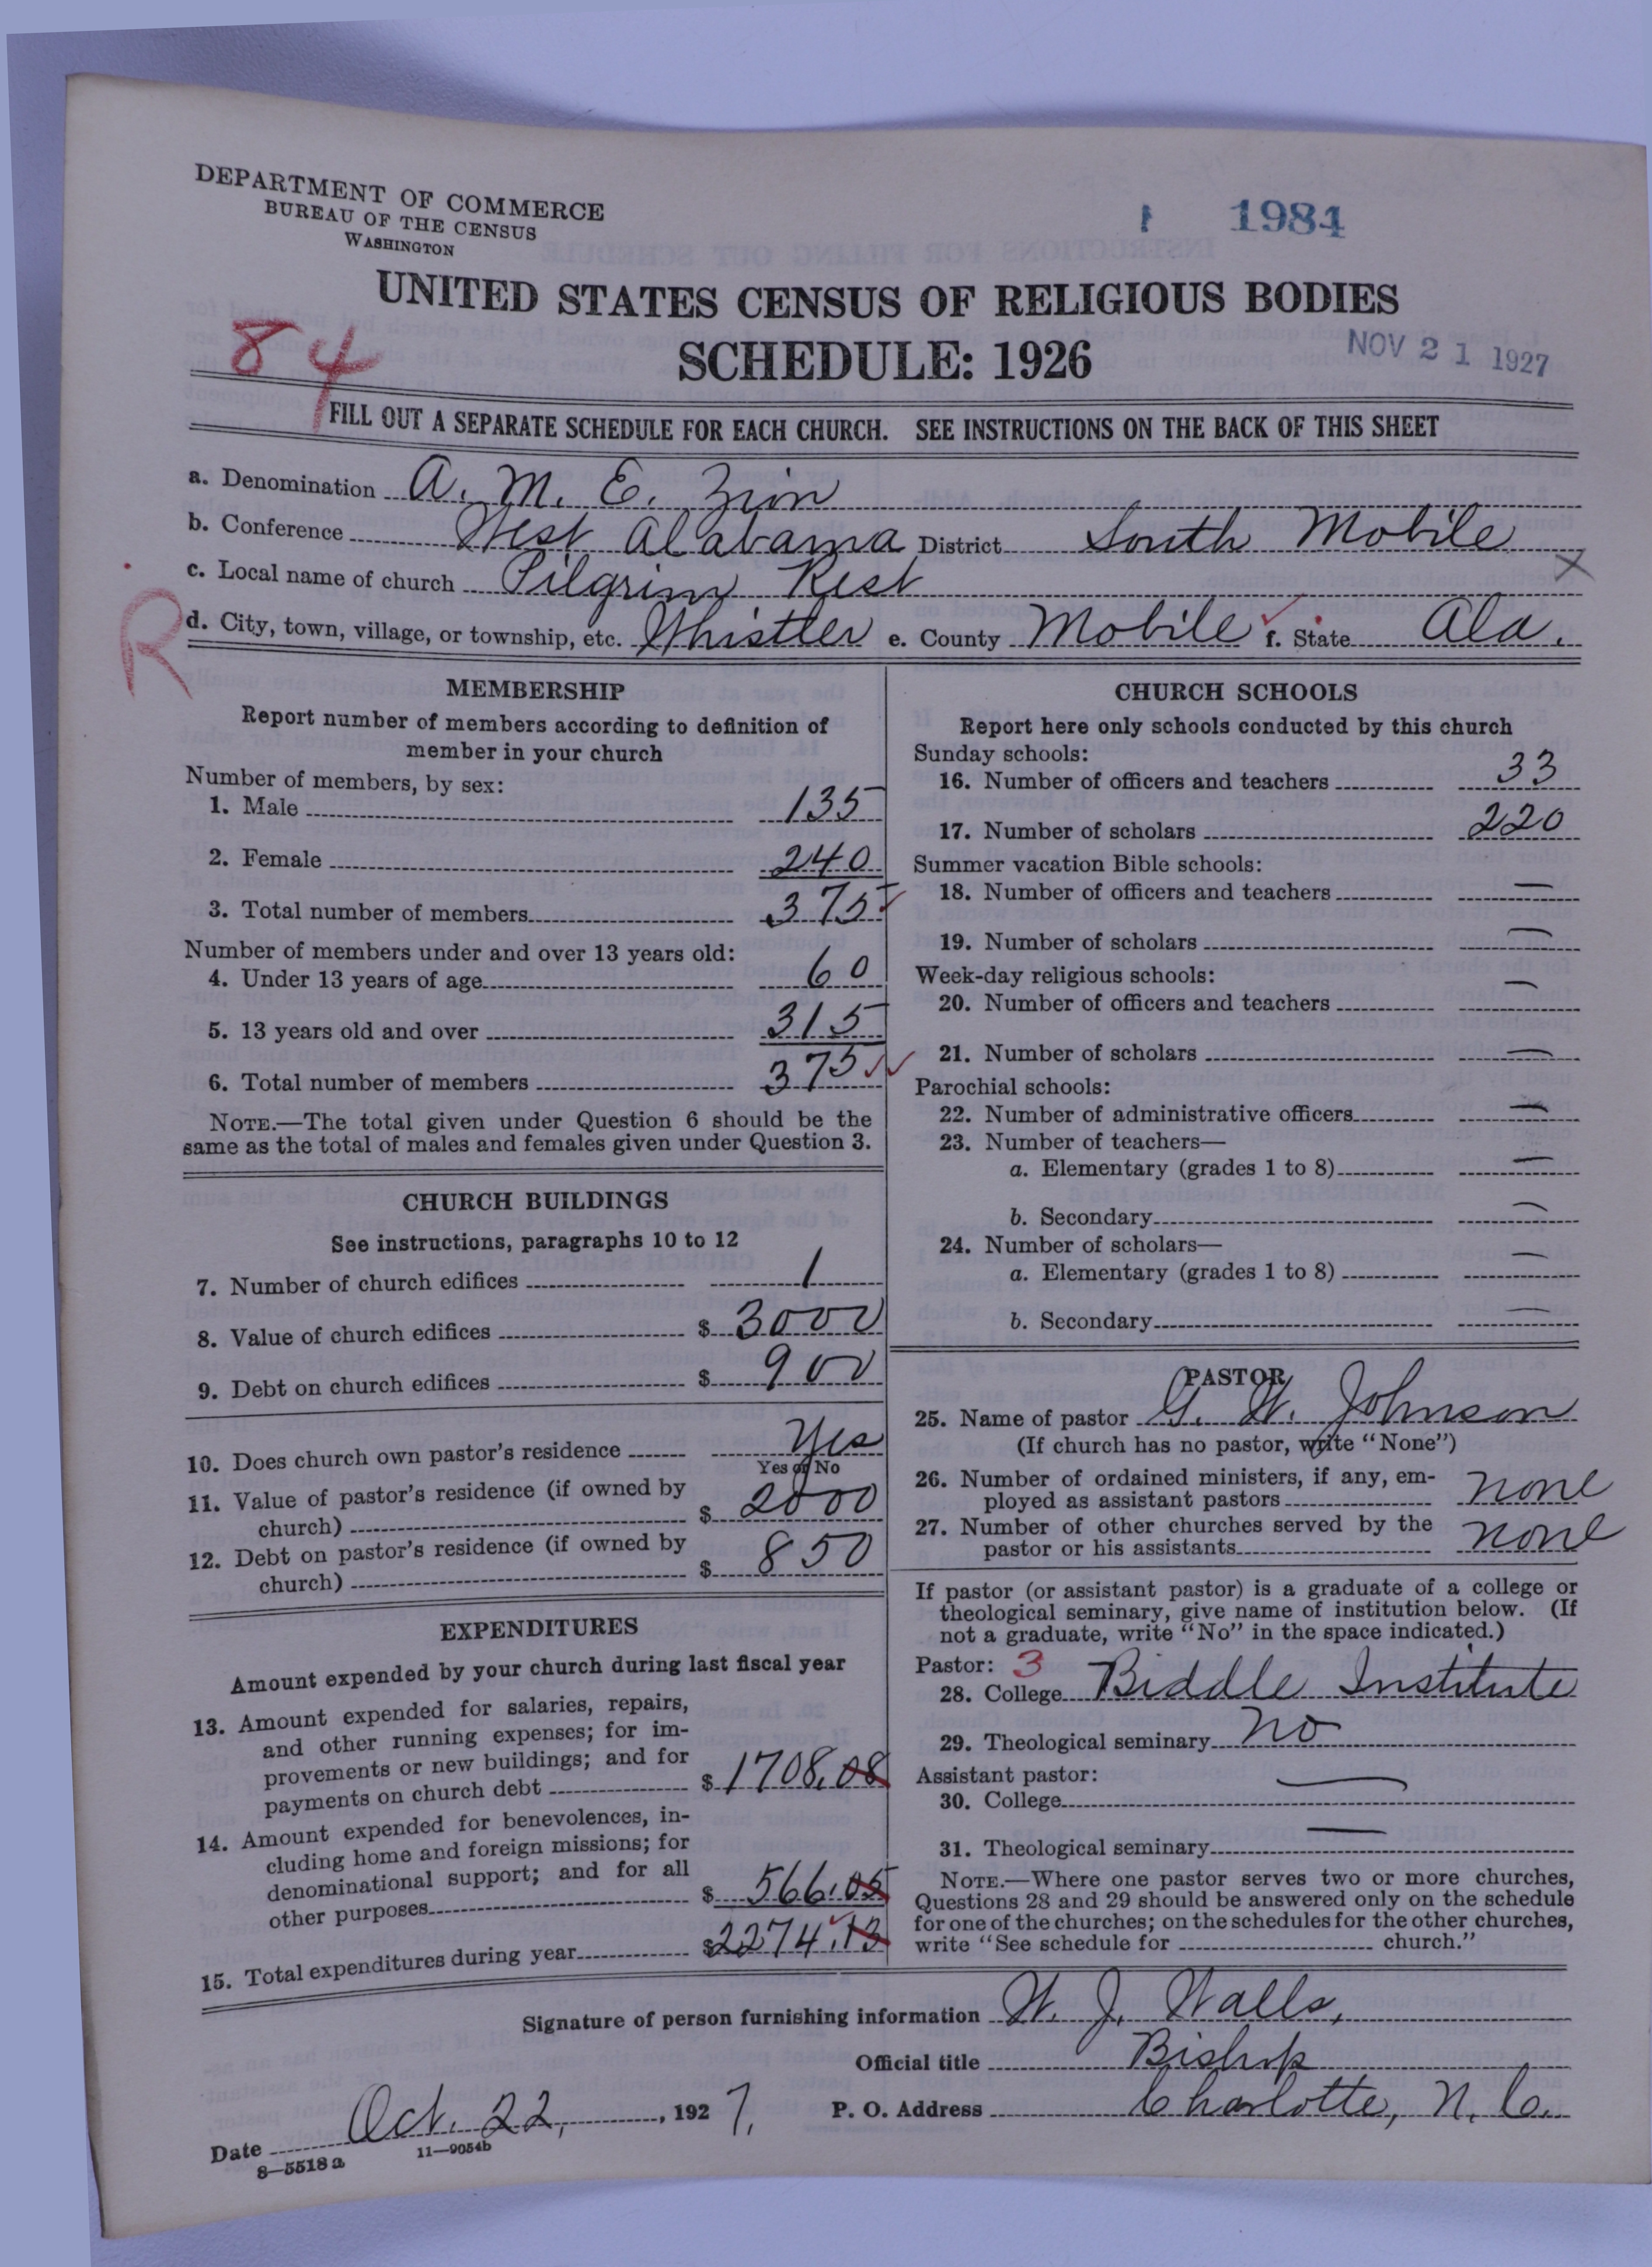 DEPARTMENT OF COMMERCE
BUREAU OF THE CENSUS
WASHINGTON
1984
UNITED STATES CENSUS OF RELIGIOUS BODIES
84
SCHEDULE: 1926
NOV 21 1927
FILL OUT A SEPARATE SCHEDULE FOR EACH CHURCH. SEE INSTRUCTIONS ON THE BACK OF THIS SHEET
a. Denomination A. M. E. Zion
b. Conference West Alabama District South Mobile
c. Local name of church Pilgrim Rest X
R
d. City, town, village, or township, etc. Whistler e. County Mobile f. State Ala.
MEMBERSHIP
Report number of members according to definition of
member in your church
Number of members, by sex:
1. Male 135
2. Female 240
3. Total number of members 375
Number of members under and over 13 years old:
4. Under 13 years of age 60
5. 13 years old and over 315
6. Total number of members 375
NOTE.—The total given under Question 6 should be the
same as the total of males and females given under Question 3.
CHURCH BUILDINGS
See instructions, paragraphs 10 to 12
7. Number of church edifices 1
8. Value of church edifices $ 3000
9. Debt on church edifices $ 900
10. Does church own pastor's residence Yes
Yes or No
11. Value of pastor's residence (if owned by
church) $ 2000
12. Debt on pastor's residence (if owned by
church) $ 850
EXPENDITURES
Amount expended by your church during last fiscal year
13. Amount expended for salaries, repairs,
and other running expenses; for im-
provements or new buildings; and for
payments on church debt $ 1708.08
14. Amount expended for benevolences, in-
cluding home and foreign missions; for
denominational support; and for all
other purposes $ 566.05
15. Total expenditures during year $ 2274.13
CHURCH SCHOOLS
Report here only schools conducted by this church
Sunday schools:
16. Number of officers and teachers 33
17. Number of scholars 220
Summer vacation Bible schools:
18. Number of officers and teachers —
19. Number of scholars —
Week-day religious schools:
20. Number of officers and teachers —
21. Number of scholars —
Parochial schools:
22. Number of administrative officers —
23. Number of teachers—
a. Elementary (grades 1 to 8) —
b. Secondary —
24. Number of scholars—
a. Elementary (grades 1 to 8) —
b. Secondary —
PASTOR
25. Name of pastor G. W. Johnson
(If church has no pastor, write "None")
26. Number of ordained ministers, if any, em-
ployed as assistant pastors none
27. Number of other churches served by the
pastor or his assistants none
If pastor (or assistant pastor) is a graduate of a college or
theological seminary, give name of institution below. (If
not a graduate, write "No" in the space indicated.)
Pastor: 3
28. College Biddle Institute
29. Theological seminary no
Assistant pastor:
30. College —
31. Theological seminary —
NOTE.—Where one pastor serves two or more churches,
Questions 28 and 29 should be answered only on the schedule
for one of the churches; on the schedules for the other churches,
write "See schedule for church."
Signature of person furnishing information W. J. Walls,
Official title Bishop
P. O. Address Charlotte, N. C.
Date Oct. 22, 1927.
8—5518a 11—9054b